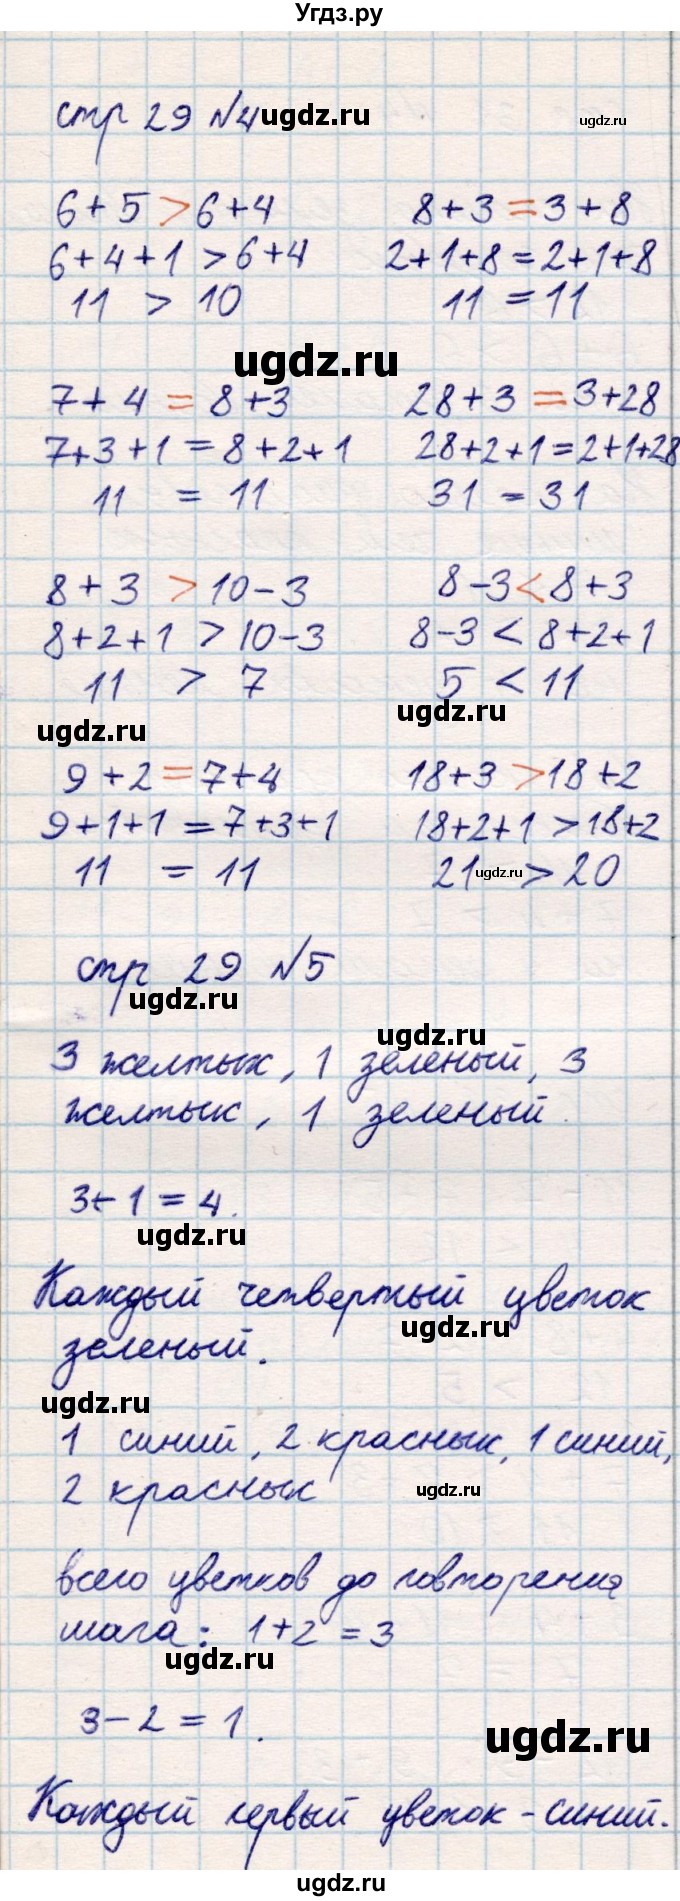 Угдз.ру
стр 29 №4 ugdz.ru ugdz.ru
6+5 > 6+4 8+3 = 3+8
6+4+1 > 6+4 2+1+8 = 2+1+8
11 > 10 11 = 11
ugdz.ru
7+4 = 8+3 28+3 = 3+28
7+3+1 = 8+2+1 28+2+1 = 2+1+28
11 = 11 31 = 31
8+3 > 10-3 8-3 < 8+3
8+2+1 > 10-3 8-3 < 8+2+1
11 > 7 5 < 11
ugdz.ru ugdz.ru
9+2 = 7+4 18+3 > 18+2
9+1+1 = 7+3+1 18+2+1 > 18+2
11 = 11 21 ugdz.ru > 20
стр 29 №5
ugdz.ru
ugdz.ru
3 желтых, 1 зеленый, 3
желтых, 1 зеленый.
3+1 = 4.
ugdz.ru
Каждый четвертый цветок
ugdz.ru
зеленый.
ugdz.ru
1 синий, 2 красных, 1 синий,
2 красных ugdz.ru
всего цветков до повторения
шага: 1+2 = 3
ugdz.ru
3-2 = 1.
ugdz.ru
Каждый первый цветок - синий.
ugdz.ru